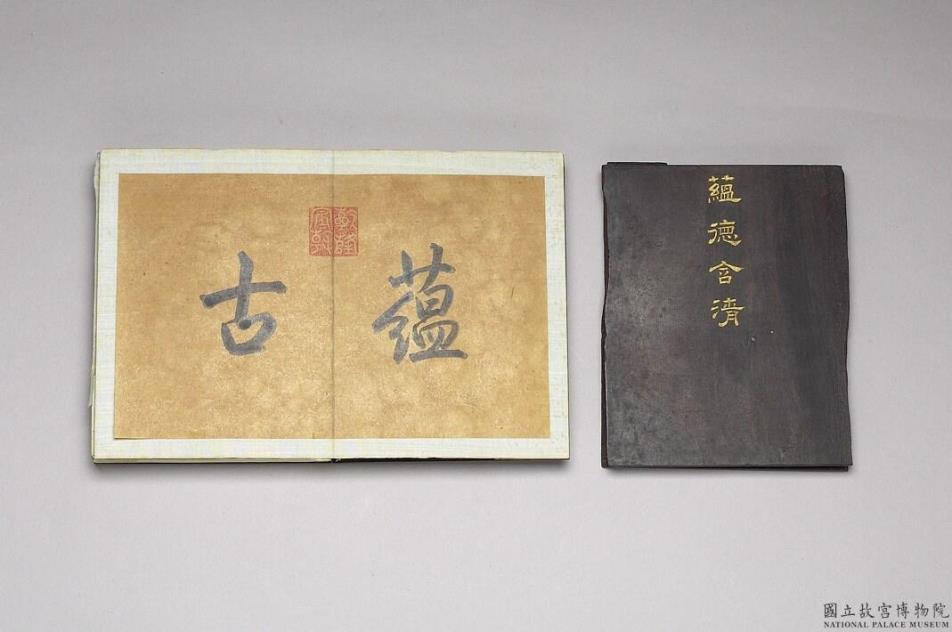 蘊古
乾隆
宸翰
蘊德含清
國立故宮博物院
NATIONAL PALACE MUSEUM